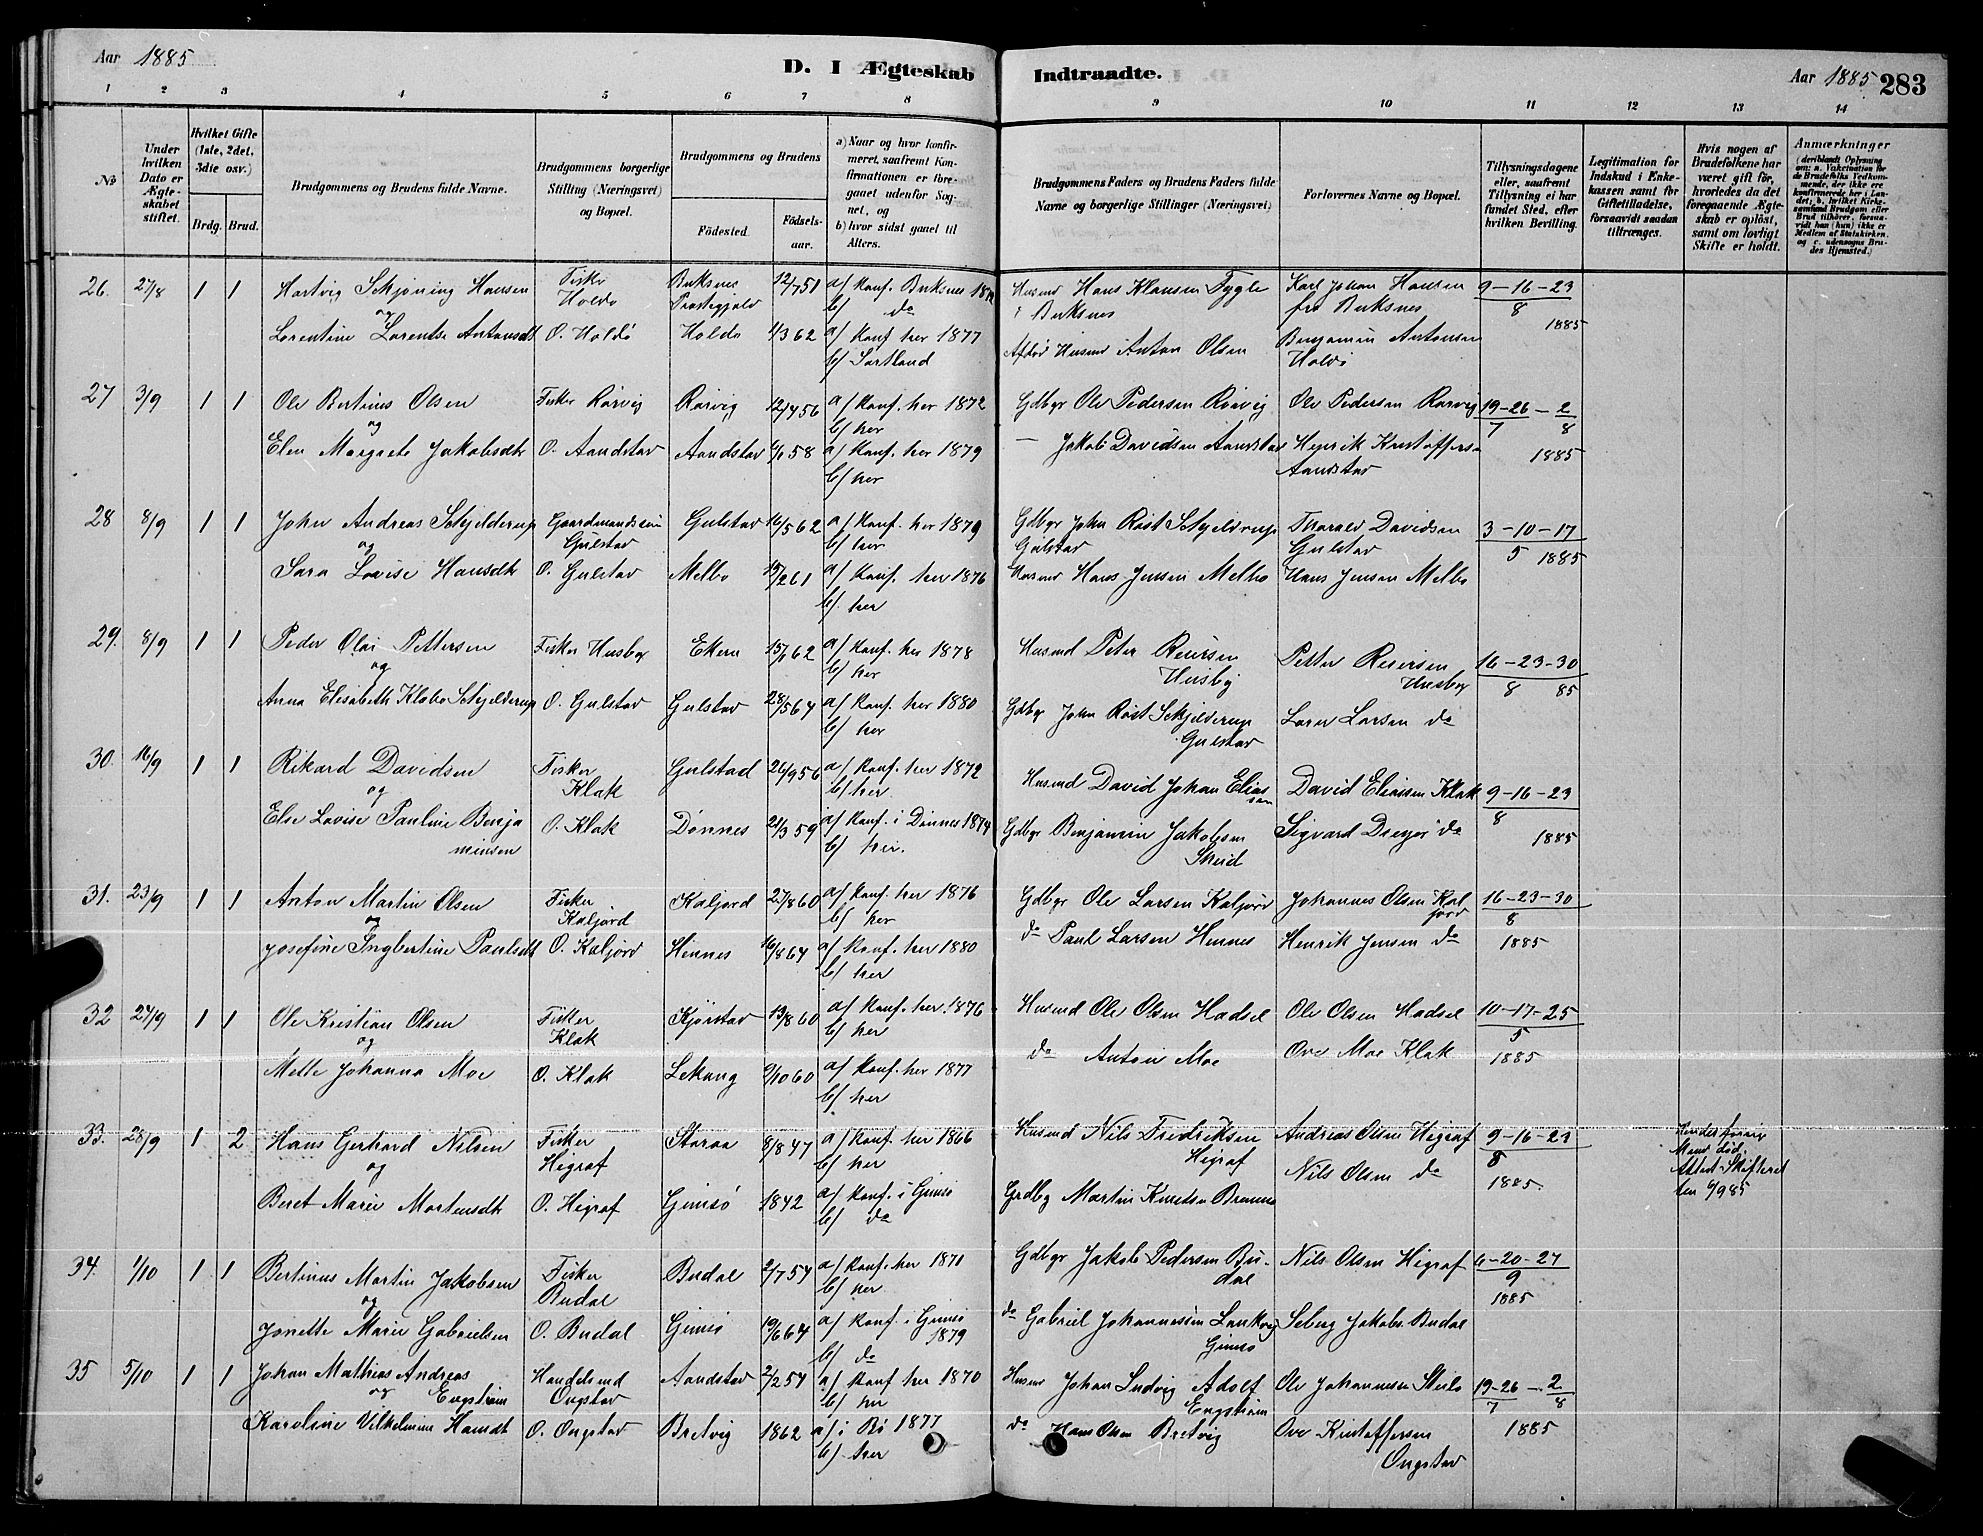 Aar 1885
D. I Ægteskab Indtraadte.
Aar 1885 283
1 2 3 4 5 6 7 8 9 10 11 12 13 14
No
Under hvilken Dato er Ægteskabet stiftet.
Hvilket Gifte (1ste, 2det, 3die osv.)
Brdg. Brud.
Brudgommens og Brudens fulde Navne.
Brudgommens borgerlige Stilling (Næringsvei) og Bopæl.
Brudgommens og Brudens
Födested. Födsels-aar.
a) Naar og hvor konfirmeret, saafremt Konfirmationen er foregaaet udenfor Sognet, og
b) hvor sidst gaaet til Alters.
Brudgommens Faders og Brudens Faders fulde Navne og borgerlige Stillinger (Næringsvei)
Forlovernes Navne og Bopæl.
Tillysningsdagene eller, saafremt Tillysning ei har fundet Sted, efter hvilken Bevilling.
Legitimation for Indskud i Enkekassen samt for Giftetilladelse, forsaavidt saadan tiltrænges.
Hvis nogen af Brudefolkene har været gift för, hvorledes da det foregaaende Ægteskab er oplöst, samt om lovligt Skifte er holdt.
Anmærkninger
26. 27/8 1 1 Hartvig Schjøning Hansen Fisker Holdø Buksnes Præstegjæld 12/7 51 a/ Konf. Buksnes b/ do Husmd Hans Klausen Fygle i Buksnes Karl Johan Hansen fra Buksnes 9-16-23/8 1885
og
Lorentine Lorentse Antonsdt O. Holdø Holdø 1/3 62 a/ Konf her 1877 b/ Sortland Afdød Husmd Anton Olsen Benjamin Antonsen Holdø
27 3/9 1 1 Ole Bertinus Olsen Fisker Rørvig Rørvig 12/4 56 a/ Konf. her 1872 b/ her Gdbgr Ole Pedersen Rørvig Ole Pedersen Rørvig 19-26/7 - 2/8 1885
og
Elen Margrete Jakobsdt O. Aandstad Aandstad 58 a/ Konf. her 1879 b/ her — Jakob Davidsen Aandstad Henrik Kristoffersen Aandstad
28 8/9 1 1 John Andreas Schjelderup Gaardmandssøn Gulstav Gulstav 16/5 62 a/ Konf. her 1879 b/ her Gdbgr John Röst Schjelderup Gulstav Tharald Davidsen Gulstav 3-10-17/5 1885
og
Sara Lovise Hansdt O. Gulstav Melbo 15/2 61 a/ Konf. her 1876 b/ her Husmd Hans Jensen Melbo Hans Jensen Melbo
29. 8/9 1 1 Peder Olai Pettersen Fisker Husby Ekern 15/1 62 a/ Konf. her 1878 b/ her Husmd Peter Reiersen Husby Petter Reiersen Husby 16-23-30/8 85
og
Anna Elisabeth Klabo Schjelderup O. Gulstav Gulstav 28/5 64 a/ Konf. her 1880 b/ her Gdbgr John Röst Schjelderup Gulstav Lars Larsen do
30. 16/9 1 1 Rikard Davidsen Fisker Klak Gulstad 26/9 56 a/ Konf. her 1872 b/ her. Husmd David Johan Eliassen David Eliassen Klak 9-16-23/8 1885
og
Else Lovise Pauline Benjaminsen O. Klak Dønnes 21/3 59 a/ Konf. i Dønnes 1874 b/ her. Gdbgr Benjamin Jakobsen Skeid Sigvard Dreyer do
31. 23/9 1 1 Anton Martin Olsen Fisker Kaljord Kaljord 27/8 60 a/ Konf. her 1876 b/ her Gdbgr Ole Larsen Kaljord Johannes Olsen Kaljord 16-23-30/8 1885
og
Josefine Ingbertine Paulsdt O. Kaljord Hennes 16/8 64 a/ Konf. her 1880 b/ her do Paul Larsen Hennes Henrik Jensen do
32 24/9 1 1 Ole Kristian Olsen Fisker Klak Kjørstad 13/8 60 a/ Konf. her 1876 b/ her Husmd Ole Olsen Hadsel Ole Olsen Hadsel 10-17-25/5 1885
og
Mette Johanna Moe O. Klak Lekang 9/10 60 a/ Konf. her 1877 b/ her do Anton Moe Ove Moe Klak
33. 28/9 1 2 Hans Gerhard Nilsen Fisker Higraf Storaa 8/8 47 a/ Konf. her 1866 b/ her Husmd Nils Fredriksen Higraf Andreas Olsen Higraf 9-16-23/8 1885. Hendes forrige Mand død. Attest Skifteret den 9/9 85
og
Beret Marie Mortensdt O. Higraf Gimsø 1842 a/ Konf. i Gimsø b/ do Gdbg Martin Knutsen Brenna Nils Olsen do
34. 1/10 1 1 Bertinus Martin Jakobsen Fisker Budal Budal 2/7 54 a/ Konf. her 1871 b/ her. Gdbgr Jakob Pedersen Budal Nils Olsen Higraf 6-20-27/9 1885
og
Jonette Marie Gabrielsen O. Budal Gimsø 19/6 64 a/ Konf. i Gimsø 1879 b/ do do Gabriel Johannessen Gimsø Seberg Jakobs. Budal
35 5/10 1 1 Johan Mathias Andreas Engstrøm Handelsmd Ongstav Aandstav 2/2 54 a/ Konf her 1870 b/ her Husmd Johan Ludvig Adolf Engstrøm Ole Johannesen Steilo 19-26/7 - 2/8 1885
og
Karoline Vilhelmine Hansdt O. Ongstav Bretvig 1862 a/ i Bø 1877 b/ her do Hans Olsen Bretvig Ove Kristoffersen Ongstav